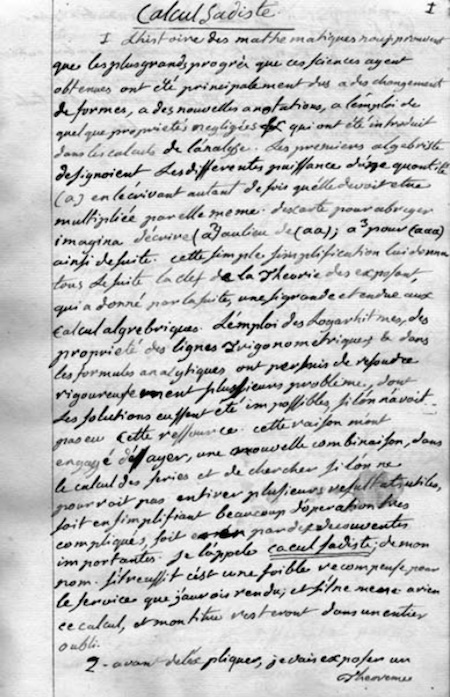 Calcul Sadiste.
1
1 L'histoire des mathematiques nous prouvent
que les plus grands progrès que ces sciences ayent
obtenues ont été principalement dus a des changement
de formes, a des nouvelles anotations, a l'émploi de
quelque propriétés negligées & qui ont été introduit
dans les calculs de l'analyse. Les premiers algebriste
designoient Les differentes puissance d'une quantité
(a) en l'ecrivant autant de fois quelle devoit etre
multipliée par elle meme. descarte pour abreger
imagina décrire (a²) au lieu de (aa); a³ pour (aaa)
ainsi de suite. cette simple simplification lui donna
tous de suite la clef de la Theorie des exposant,
qui a donné par la suite, une si grande etendue aux
Calcul algrebriques. L'émploi des Logarhitmes, des
proprieté des lignes Trigonometriques & dans
les formules analytiques ont permis de resoudre
rigoureusement plussieurs probléme, dont
Les solutions eussent été impossibles si lón navoit
pas eu Cette ressource. cette raison m'ont
engagé d'éssayer, une nouvelle combinaison, dans
le calcul des series et de chercher si lón ne
pourroit pas en tirer plusieurs resultats utiles,
soit en simplifiant beaucoup d'operation tres
compliqués, soit par des decouvertes
importantes. je l'appele cacul Sadiste, de mon
nom. S'il reussit cést une foible recompense pour
le service que j'aurois rendu; et s'il ne mene a rien
ce calcul, et mon titre resteront dans un entier
oubli.
2- avant de l'éxpliquer, je vais exposer un
Theoreme